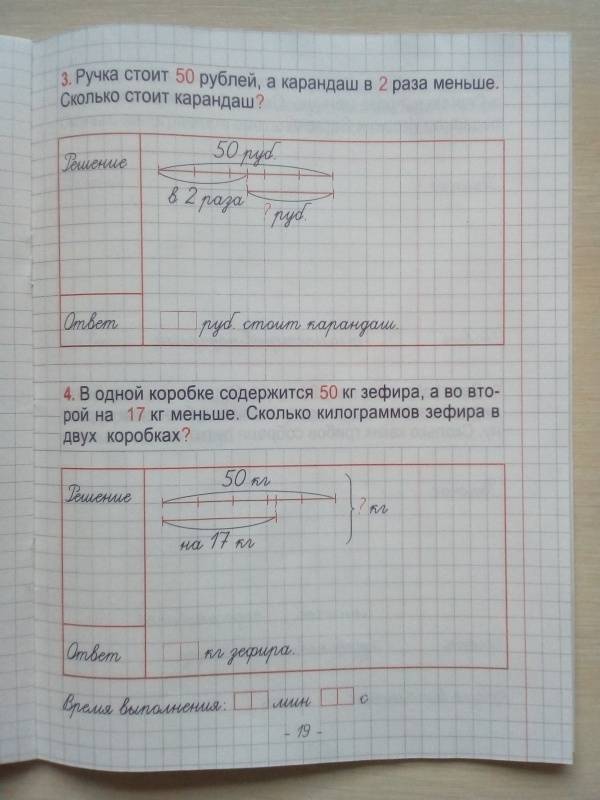 3. Ручка стоит 50 рублей, а карандаш в 2 раза меньше.
Сколько стоит карандаш?
Решение
50 руб.
в 2 раза
? руб.
Ответ
руб. стоит карандаш.
4. В одной коробке содержится 50 кг зефира, а во вто-
рой на 17 кг меньше. Сколько килограммов зефира в
двух коробках?
Решение
50 кг
? кг
на 17 кг
Ответ
кг зефира.
Время выполнения: мин с
- 19 -